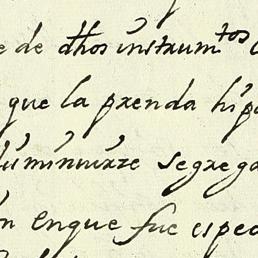 e de dhos instrumtos
que la prenda hipo
luminuirze segrega
n enque fue espec